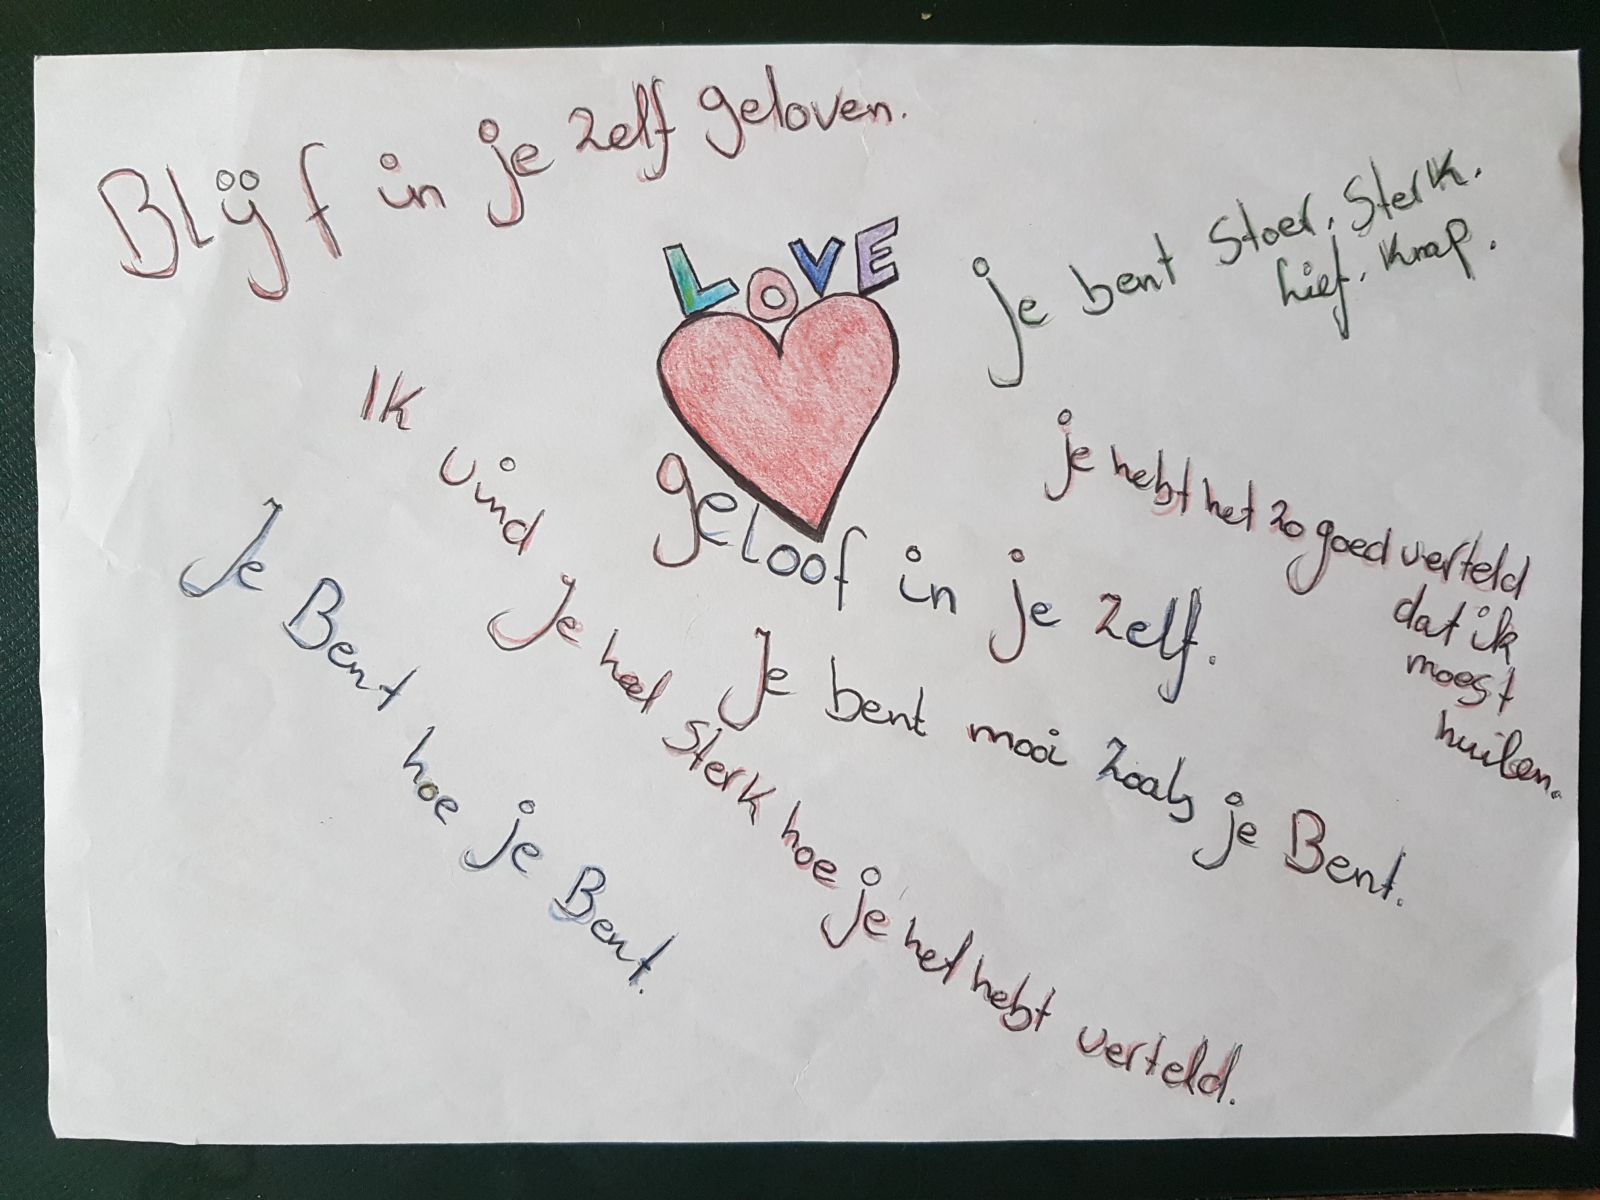 Blijf in je zelf geloven.
LOVE
je bent Stoer. Sterk.
lief. Knap.
Ik vind je heel sterk hoe je het hebt verteld.
je hebt het zo goed verteld
dat ik
moest
huilen.
geloof in je zelf.
Je bent mooi zoals je Bent.
Je Bent hoe je Bent.